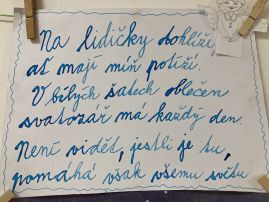 Na lidičky dohlíží
ať mají míň potíží.
V bílých šatech oblečen
svatozář má každý den.
Není vidět, jestli je tu,
pomáhá však všemu světu